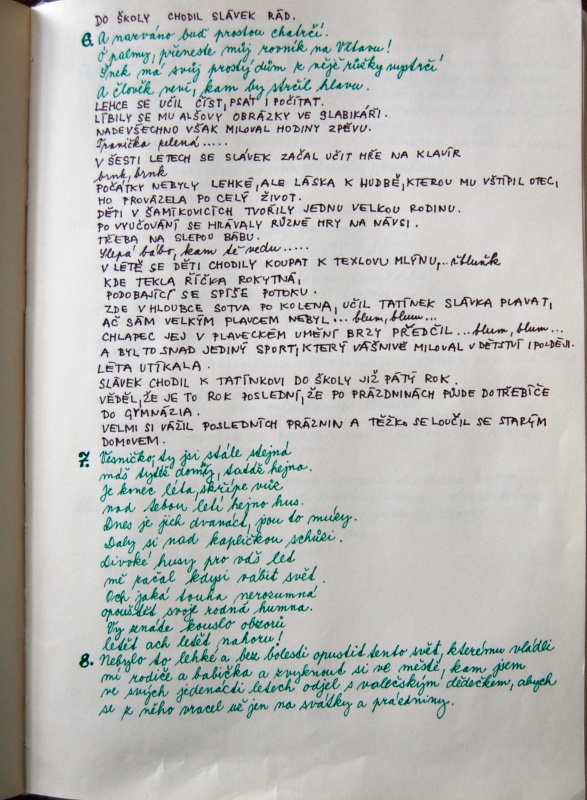 DO ŠKOLY CHODIL SLÁVEK RÁD.
6. A narváno buď prostou chatrčí.
Ó palmy, přeneste můj rovník na Vltavu!
Šnek má svůj prostý dům z nějž růžky vystrčí
A člověk neví, kam by strčil hlavu.
LEHCE SE UČIL ČÍST, PSÁT I POČÍTAT.
LÍBILY SE MU ALŠOVY OBRÁZKY VE SLABIKÁŘI.
NADEVŠECHNO VŠAK MILOVAL HODINY ZPĚVU.
Travička zelená.....
V ŠESTI LETECH SE SLÁVEK ZAČAL UČIT HŘE NA KLAVÍR
brnk, brnk
POČÁTKY NEBYLY LEHKÉ, ALE LÁSKA K HUDBĚ, KTEROU MU VŠTÍPIL OTEC,
HO PROVÁZELA PO CELÝ ŽIVOT.
DĚTI V ŠAMÍKOVICÍCH TVOŘILY JEDNU VELKOU RODINU.
PO VYUČOVÁNÍ SE HRÁVALY RŮZNÉ HRY NA NÁVSI.
TŘEBA NA SLEPOU BÁBU.
Slepá bábo, kam tě vedu.....
V LÉTĚ SE DĚTI CHODILY KOUPAT K TEXLOVU MLÝNU,... žbluňk
KDE TEKLA ŘÍČKA ROKYTNÁ,
PODOBAJÍCÍ SE SPÍŠE POTOKU.
ZDE V HLOUBCE SOTVA PO KOLENA, UČIL TATÍNEK SLÁVKA PLAVAT,
AČ SÁM VELKÝM PLAVCEM NEBYL... blum, blum...
CHLAPEC JEJ V PLAVECKÉM UMĚNÍ BRZY PŘEDČIL... blum, blum...
A BYL TO SNAD JEDINÝ SPORT, KTERÝ VÁŠNIVĚ MILOVAL V DĚTSTVÍ I POZDĚJI.
LÉTA UTÍKALA.
SLÁVEK CHODIL K TATÍNKOVI DO ŠKOLY JIŽ PÁTÝ ROK.
VĚDĚL, ŽE JE TO ROK POSLEDNÍ, ŽE PO PRÁZDNINÁCH PŮJDE DO TŘEBÍČE
DO GYMNÁZIA.
VELMI SI VÁŽIL POSLEDNÍCH PRÁZNIN A TĚŽKO SE LOUČIL SE STARÝM
DOMOVEM.
7. Vesničko, ty jsi stále stejná
máš tytéž domky, tatáž hejna.
Je konec léta, skřípe vůz
nad tebou letí hejno hus.
Dnes je jich dvanáct, jsou to múzy.
Daly si nad kapličkou schůzi.
Divoké husy pro váš let
mě začal kdysi vábit svět.
Och jaká touha nerozumná
opouštět svoje rodná humna.
Vy znáte kouzlo obzorů
letět ach letět nahoru!
8. Nebylo to lehké a bez bolesti opustit tento svět, kterému vládli
mí rodiče a babička a zvyknout si ve městě, kam jsem
ve svých jedenácti letech odjel s valečským dědečkem, abych
se z něho vracel už jen na svátky a prázdniny.